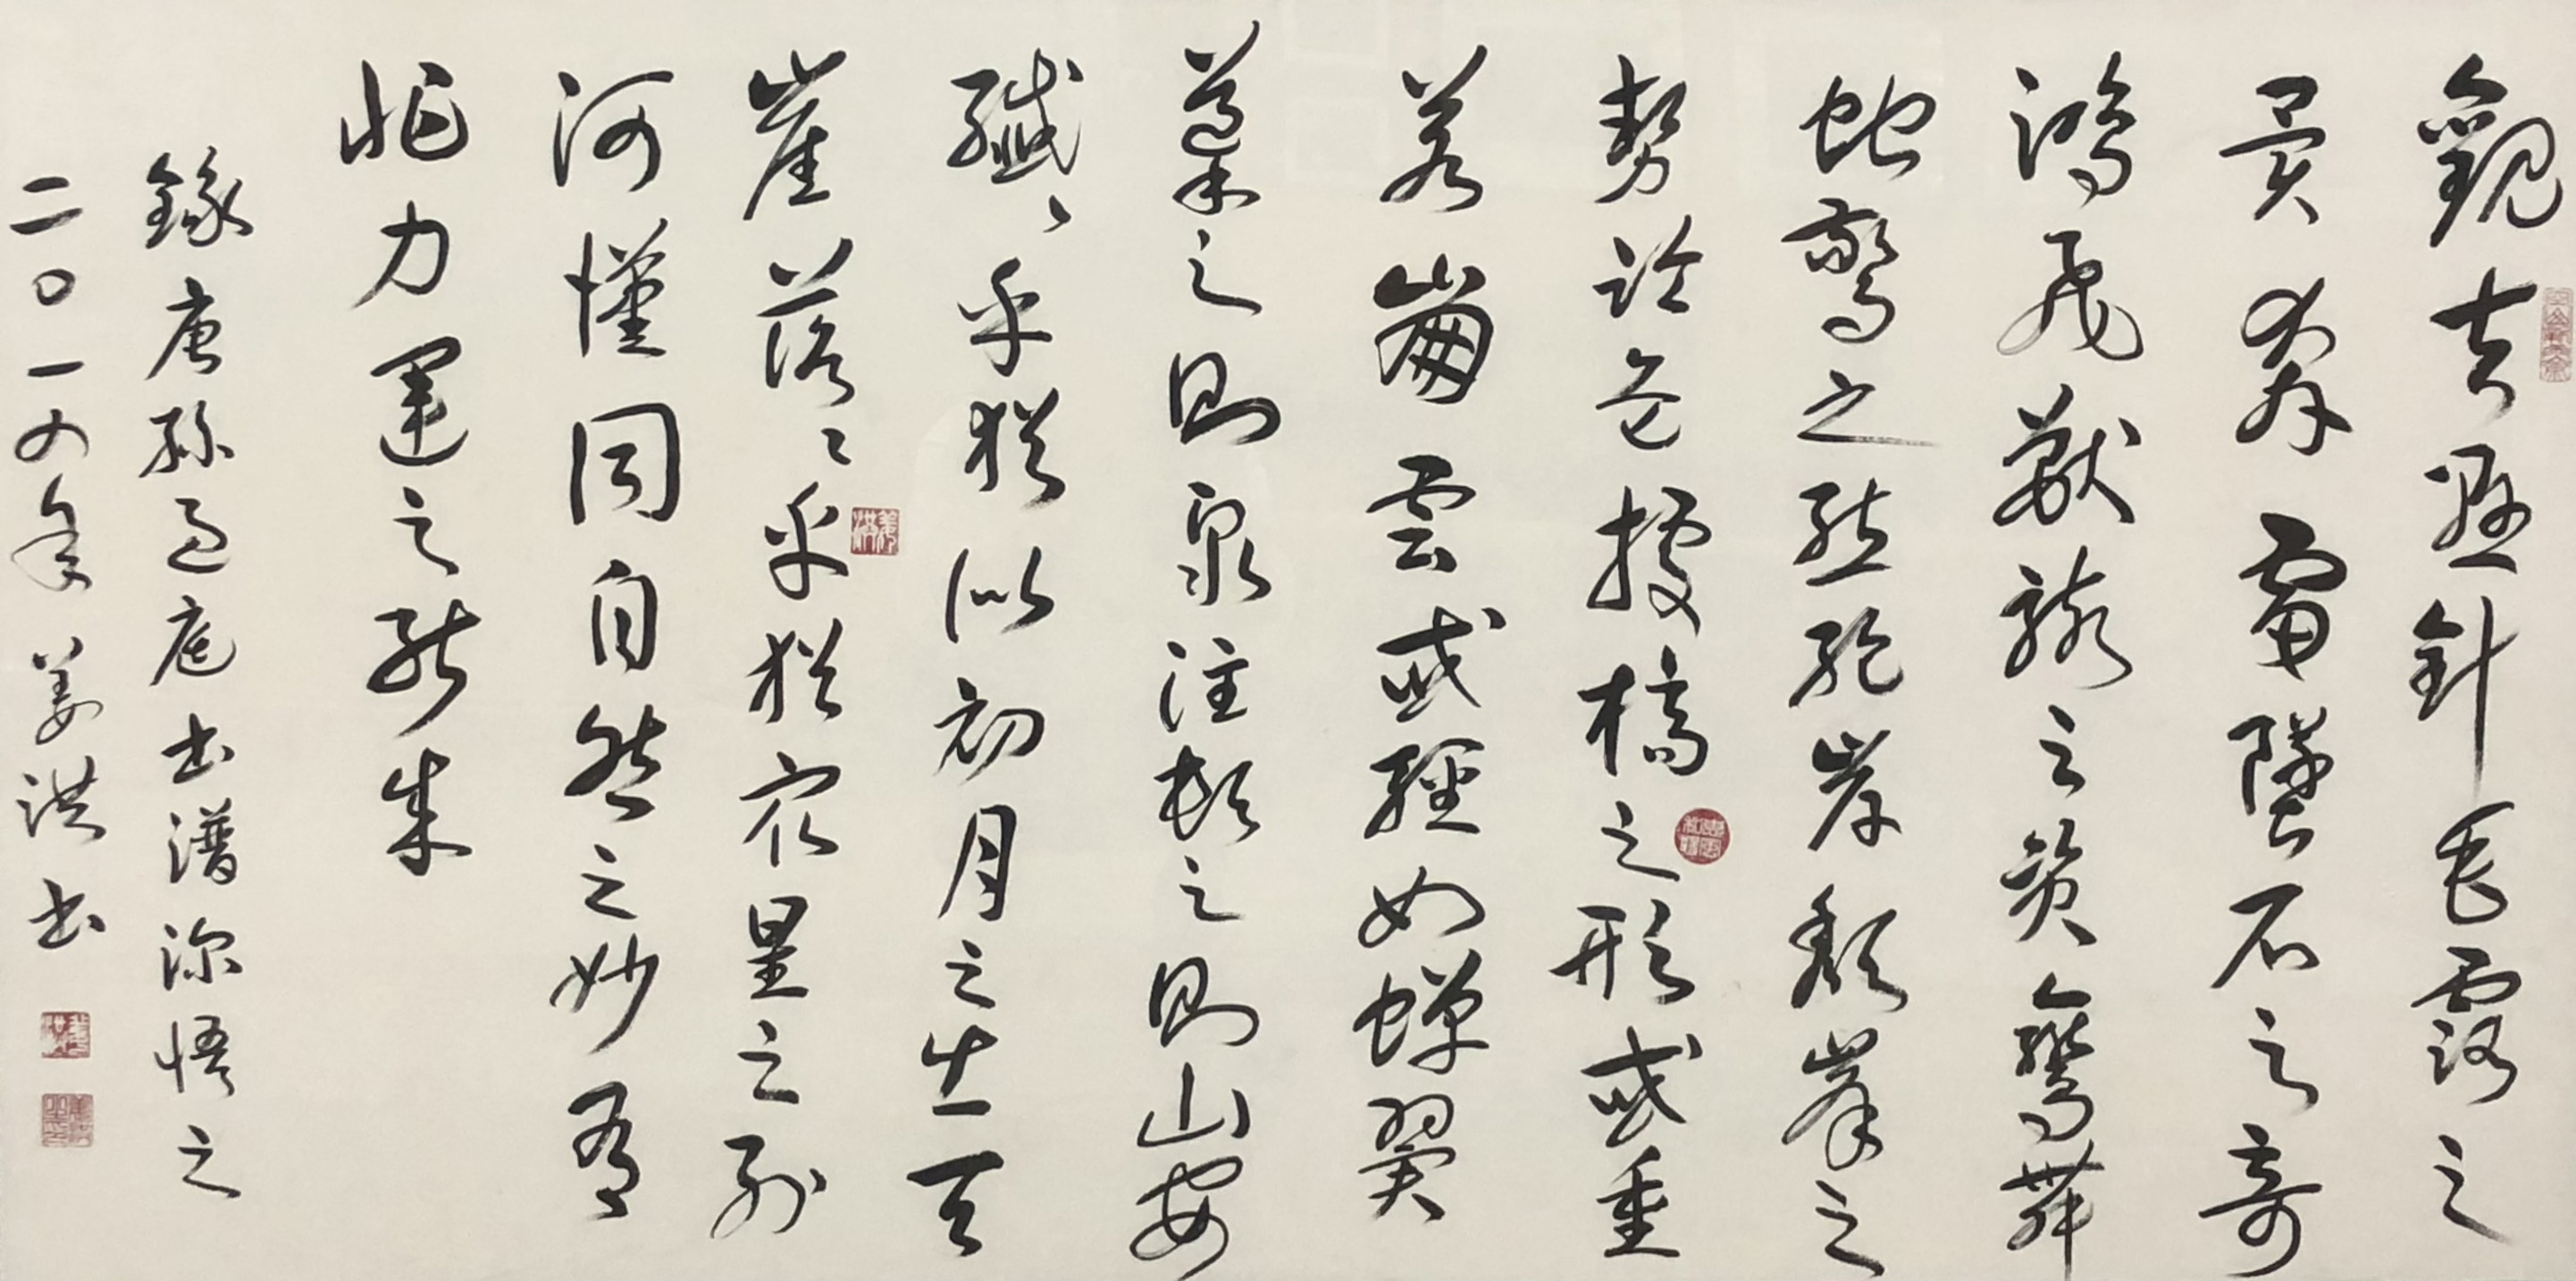 觀夫懸針垂露之
異奔雷墜石之奇
鴻飛獸駭之資鸞舞
蛇驚之態絕岸頹峯之
勢臨危據槁之形或重
若崩雲或輕如蟬翼
導之則泉注頓之則山安
纖纖乎猶似初月之出天
崖落落乎猶衆星之列
河漢同自然之妙有
非力運之能成
錄唐孫過庭書譜深悟之
二〇一四年姜洪書
姜洪